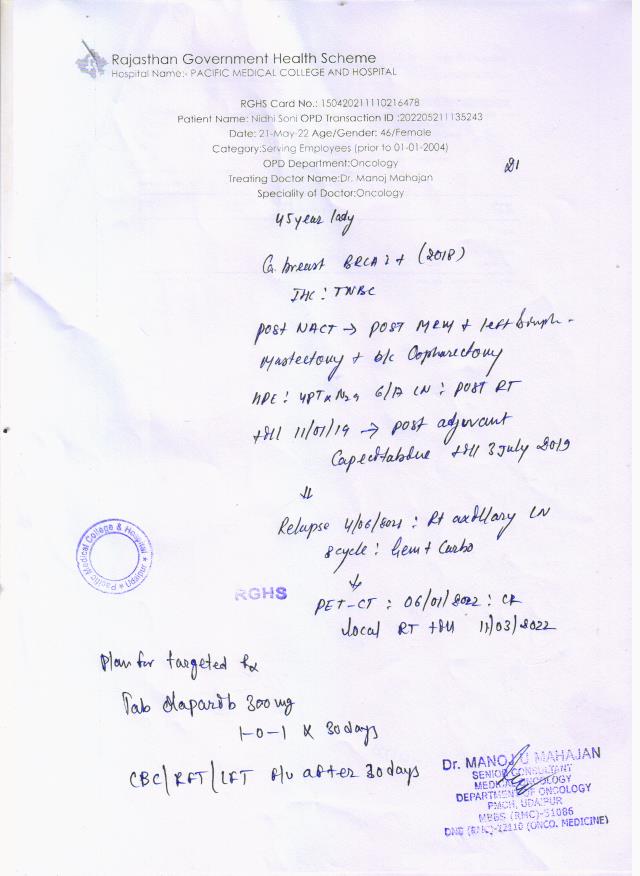 Rajasthan Government Health Scheme
Hospital Name:- PACIFIC MEDICAL COLLEGE AND HOSPITAL
RGHS Card No.: 150420211110216478
Patient Name: Nidhi Soni OPD Transaction ID :202205211135243
Date: 21-May-22 Age/Gender: 46/Female
Category:Serving Employees (prior to 01-01-2004)
OPD Department:Oncology
Treating Doctor Name:Dr. Manoj Mahajan
Speciality of Doctor:Oncology
45 year lady
Ca. breast BRCA 1 + (2018)
IHC : TNBC
post NACT → post MRM + left Simple
Mastectomy + b/c Oophorectomy
HPE : 6/17 LN : post RT
till 11/01/19 → post adjuvant
Capecitabine till 3 July 2019
↓
Relapse 4/06/2021 : Rt axillary LN
8 cycle : Gem + Carbo
↓
PET-CT : 06/01/2022 : CR
local RT till 11/03/2022
Plan for targeted Rx
Tab Olaparib 300 mg
1-0-1 X 30 days
CBC/RFT/LFT F/U after 30 days
Pacific Medical College & Hospital
★ Udaipur ★
RGHS
Dr. MANOJ U MAHAJAN
SENIOR CONSULTANT
MEDICAL ONCOLOGY
DEPARTMENT OF ONCOLOGY
PMCH, UDAIPUR
MBBS (RMC)-51086
DNB (RMC)-22110 (ONCO. MEDICINE)